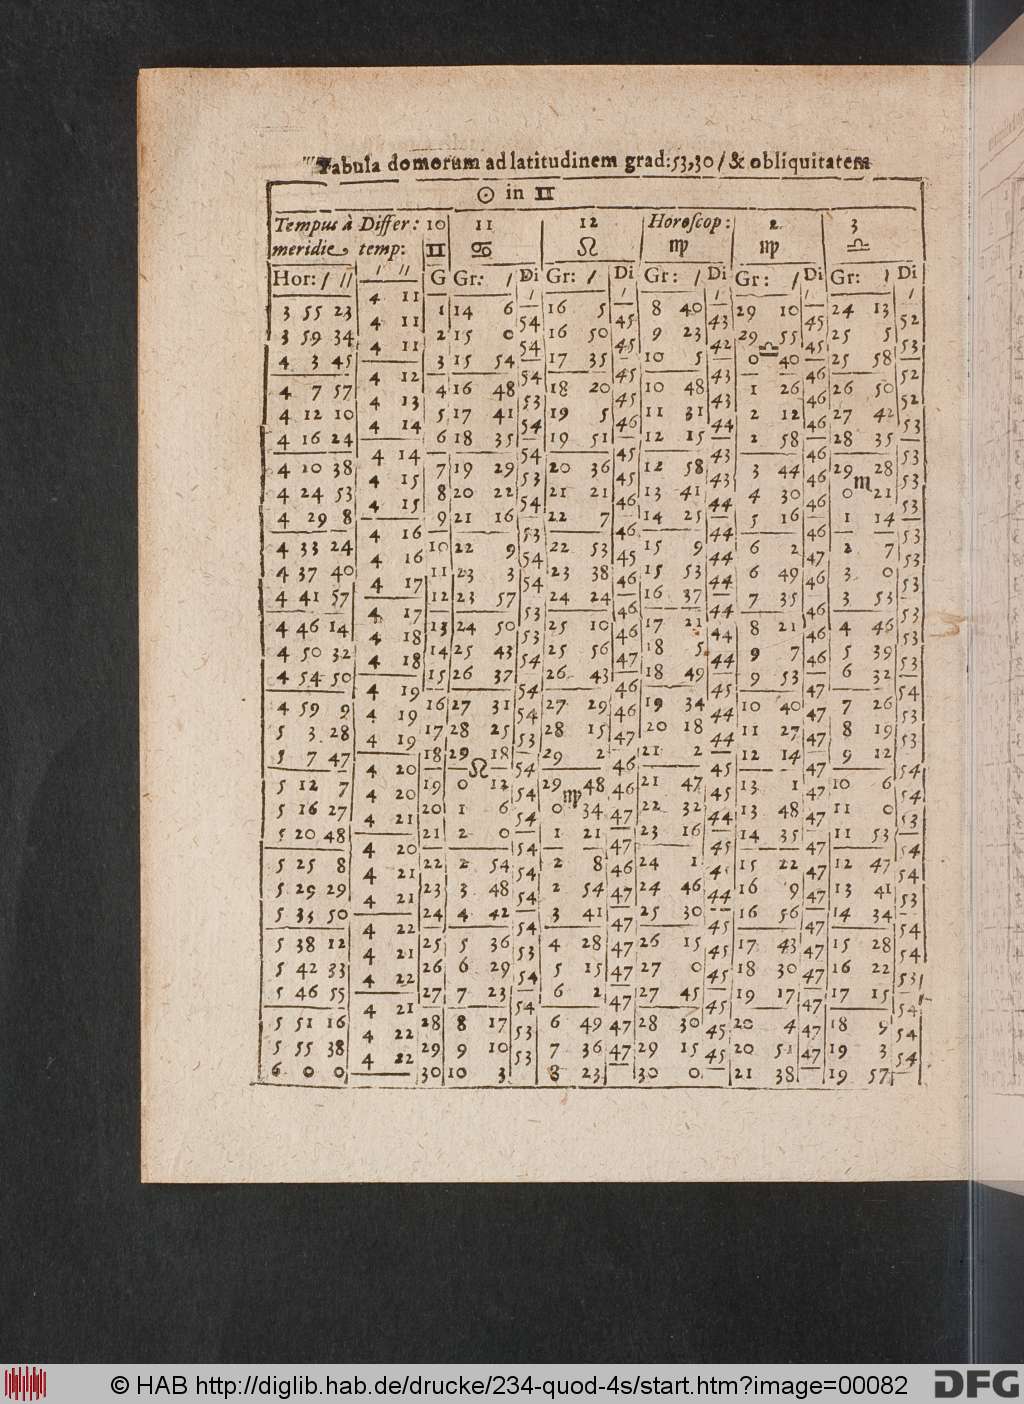 Tabula domorum ad latitudinem grad: 53,30 / & obliquitatem
☉ in ♊
Tempus à Differ: 10 11 12 Horoscop: 2 3
meridie temp: ♊ ♋ ♌ ♍ ♍ ♎
Hor: / // / // G Gr: / Di Gr: / Di Gr: / Di Gr: / Di Gr: / Di
/ / / / /
4 11
3 55 23 1 14 6 16 5 8 40 29 10 24 13
4 11 54 45 43 45 52
3 59 34 2 15 0 16 50 9 23 29 55 25 5
4 11 54 45 42 ♎ 45 53
4 3 45 3 15 54 17 35 10 5 0 40 25 58
4 12 54 45 43 46 52
4 7 57 4 16 48 18 20 10 48 1 26 26 50
4 13 53 45 43 46 52
4 12 10 5 17 41 19 5 11 31 2 12 27 42
4 14 54 46 44 46 53
4 16 24 6 18 35 19 51 12 15 2 58 28 35
4 14 54 45 43 46 53
4 20 38 7 19 29 20 36 12 58 3 44 29 28
4 15 53 45 43 46 ♏ 53
4 24 53 8 20 22 21 21 13 41 4 30 0 21
4 15 54 46 44 46 53
4 29 8 9 21 16 22 7 14 25 5 16 1 14
4 16 53 46 44 46 53
4 33 24 10 22 9 22 53 15 9 6 2 2 7
4 16 54 45 44 47 53
4 37 40 11 23 3 23 38 15 53 6 49 3 0
4 17 54 46 44 46 53
4 41 57 12 23 57 24 24 16 37 7 35 3 53
4 17 53 46 44 46 53
4 46 14 13 24 50 25 10 17 21 8 21 4 46
4 18 53 46 44 46 53
4 50 32 14 25 43 25 56 18 5 9 7 5 39
4 18 54 47 44 46 53
4 54 50 15 26 37 26 43 18 49 9 53 6 32
4 19 54 46 45 47 54
4 59 9 16 27 31 27 29 19 34 10 40 7 26
4 19 54 46 44 47 53
5 3 28 17 28 25 28 15 20 18 11 27 8 19
4 19 53 47 44 47 53
5 7 47 18 29 18 29 2 21 2 12 14 9 12
4 20 ♌ 54 46 45 47 54
5 12 7 19 0 12 29 48 21 47 13 1 10 6
4 20 54 ♍ 46 45 47 54
5 16 27 20 1 6 0 34 22 32 13 48 11 0
4 21 54 47 44 47 53
5 20 48 21 2 0 1 21 23 16 14 35 11 53
4 20 54 47 45 47 54
5 25 8 22 2 54 2 8 24 1 15 22 12 47
4 21 54 46 47 54
5 29 29 23 3 48 2 54 24 46 16 9 13 41
4 21 54 47 44 47 53
5 33 50 24 4 42 3 41 25 30 16 56 14 34
4 22 54 47 45 47 54
5 38 12 25 5 36 4 28 26 15 17 43 15 28
4 21 53 47 45 47 54
5 42 33 26 6 29 5 15 27 0 18 30 16 22
4 22 54 47 45 47 53
5 46 55 27 7 23 6 2 27 45 19 17 17 15
4 21 54 47 45 47 54
5 51 16 28 8 17 6 49 28 30 20 4 18 9
4 22 53 47 45 47 54
5 55 38 29 9 10 7 36 29 15 20 51 19 3
4 22 53 47 45 47 54
6 0 0 30 10 3 8 23 30 0 21 38 19 57
© HAB http://diglib.hab.de/drucke/234-quod-4s/start.htm?image=00082
DFG